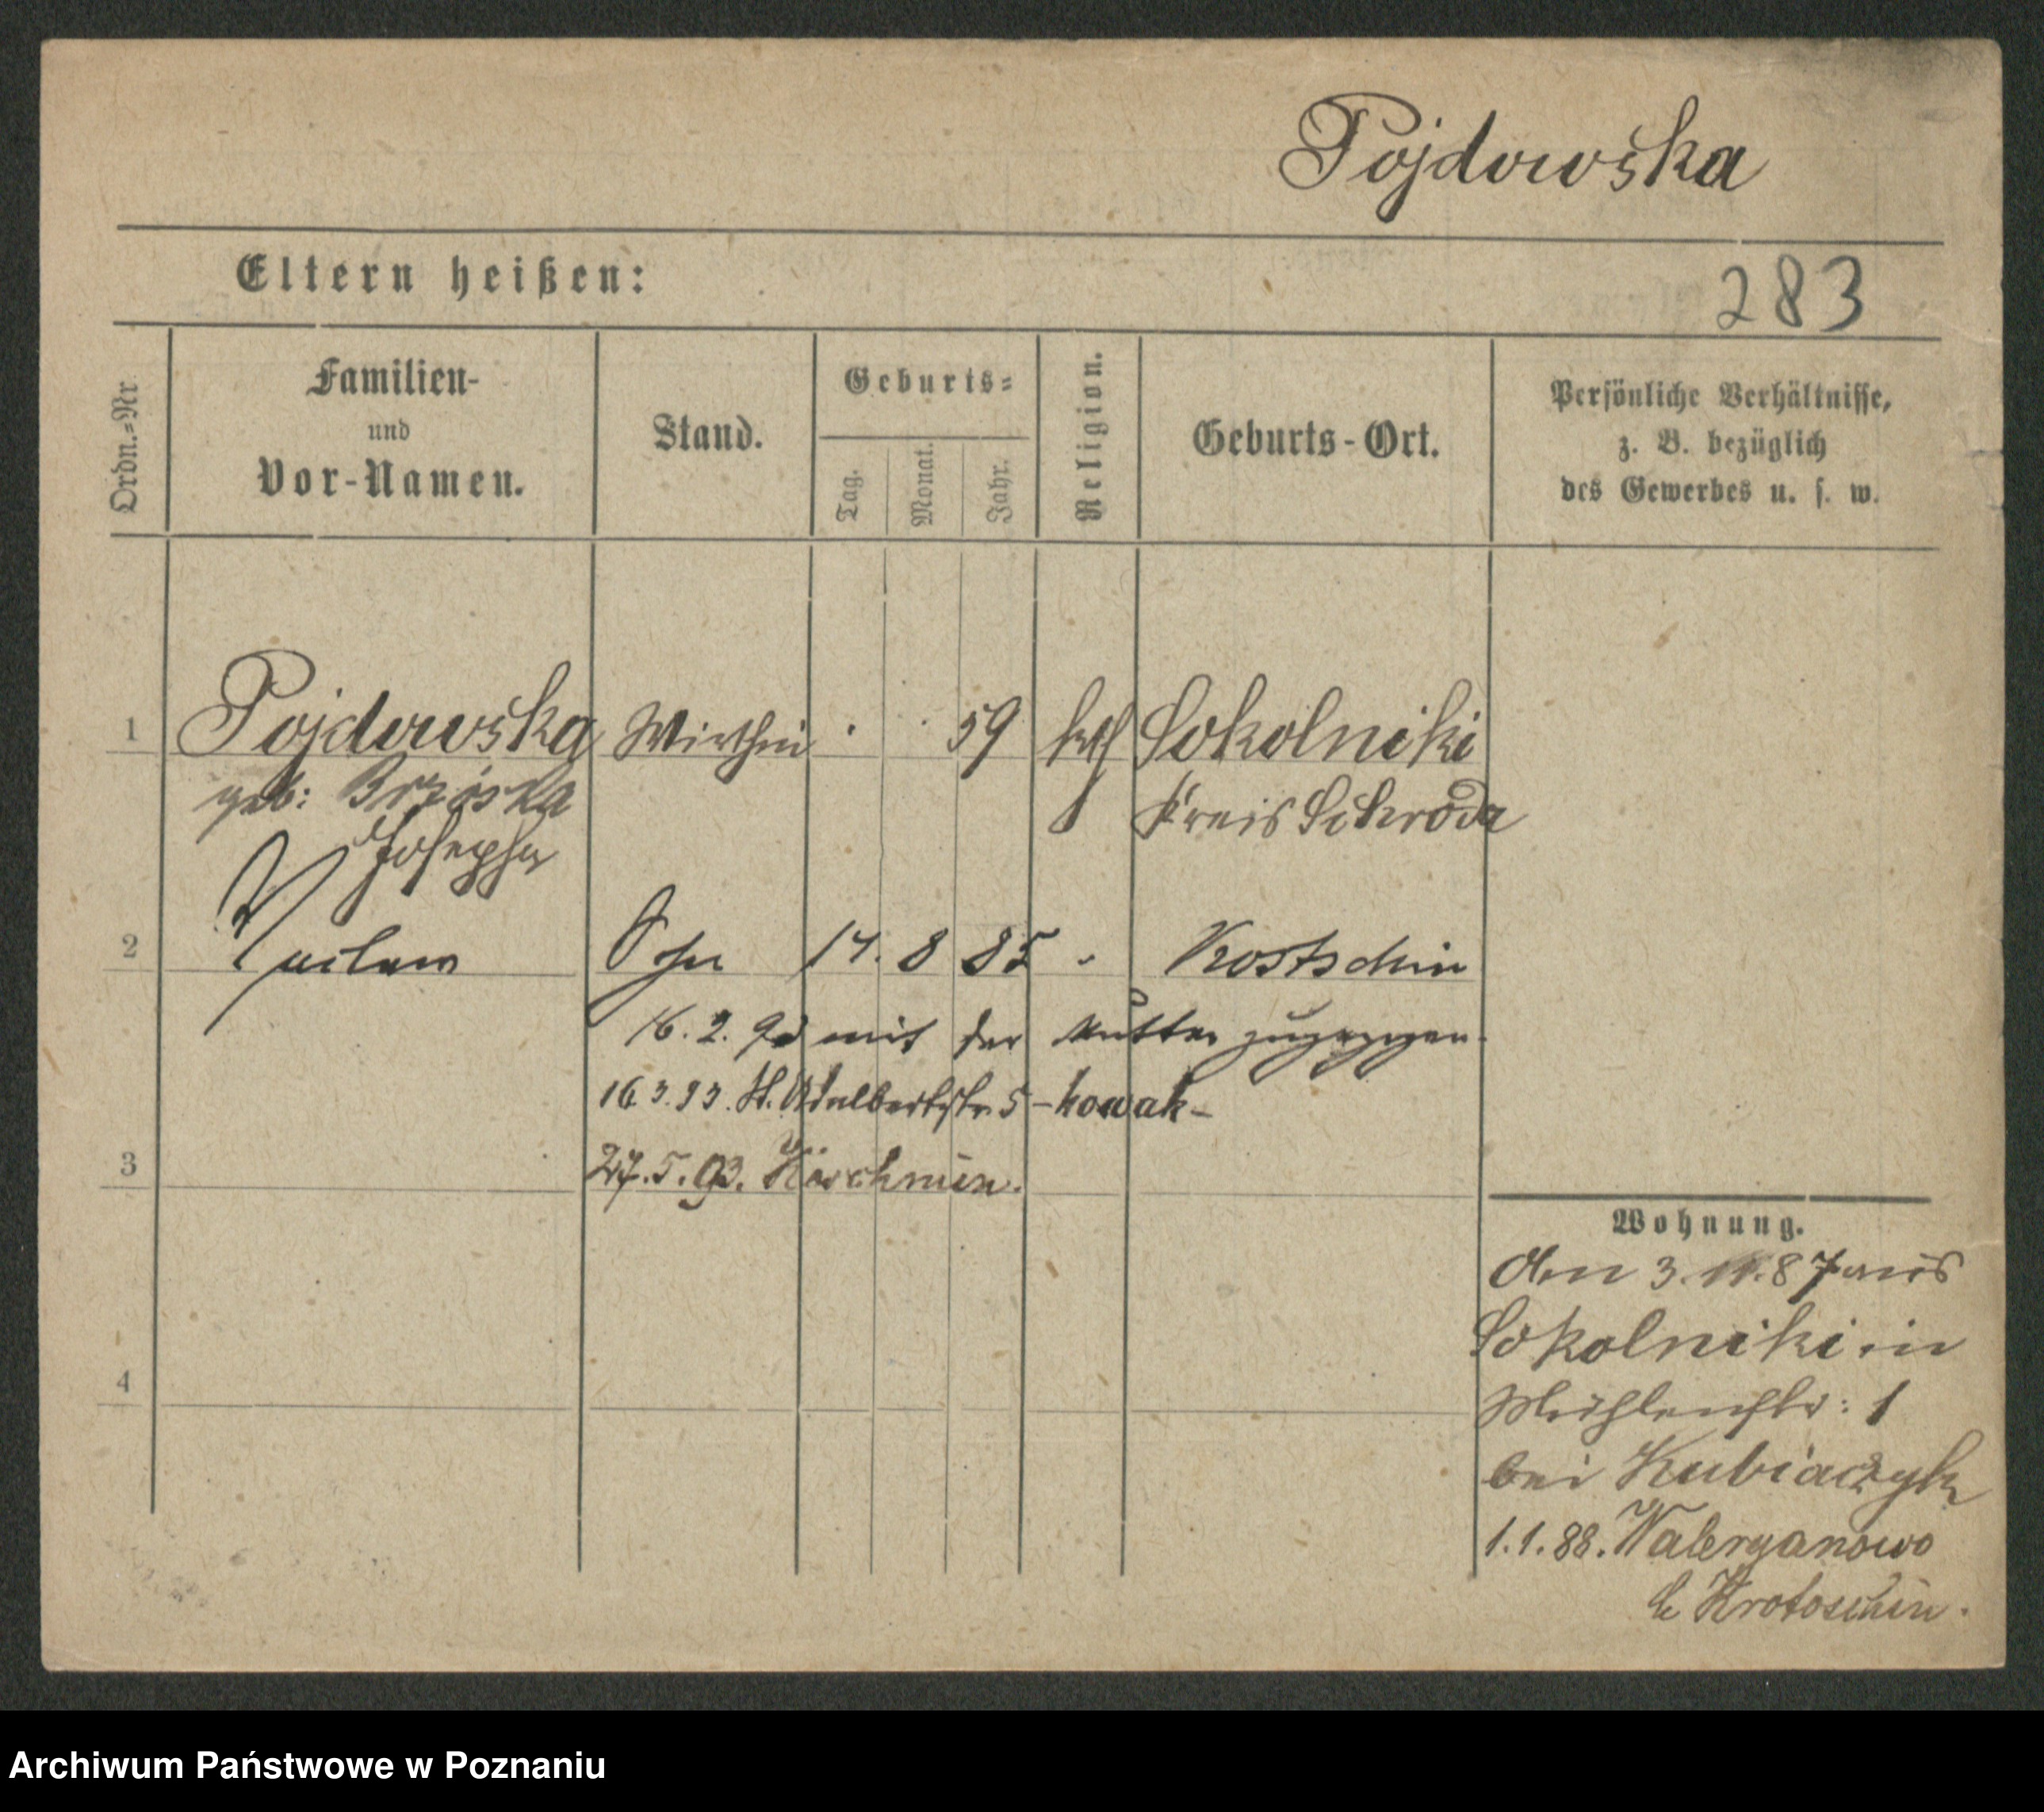 Pojdowska
Eltern heißen:
283
Ordn.-Nr.
Familien-
und
Vor-Namen.
Stand.
Geburts-
Tag.
Monat.
Jahr.
Religion.
Geburts-Ort.
Persönliche Verhältnisse,
z. B. bezüglich
des Gewerbes u. s. w.
1 Pojdowska Wirthin 59 kath Sokolniki
geb: Brziska Kreis Schroda
Josepha
2 Sohn 14. 8 85 Kostschin
16. 2. 93 mit der Mutter zugezogen.
16 3. 93. St. Adalbertstr. 5 - Nowak -
3 27. 5. 93.
4
Wohnung.
den 3. 11. 87 aus
Sokolniki in
Mühlenstr: 1
bei Kubiaczyk
1.1.88. Waleryanowo
b Krotoschin.
Archiwum Państwowe w Poznaniu